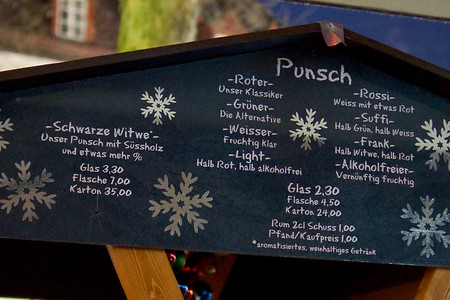 Punsch
-Schwarze Witwe-
Unser Punsch mit Süssholz
und etwas mehr %
Glas 3,30
Flasche 7,00
Karton 35,00
-Roter-
Unser Klassiker
-Grüner-
Die Alternative
-Weisser-
Fruchtig Klar
-Light-
Halb Rot, halb alkoholfrei
-Rossi-
Weiss mit etwas Rot
-Suffi-
Halb Grün, halb Weiss
-Frank-
Halb Witwe, halb Rot
-Alkoholfreier-
Vernünftig fruchtig
Glas 2,30
Flasche 4,50
Karton 24,00
Rum 2cl Schuss 1,00
Pfand/Kaufpreis 1,00
*aromatisiertes, weinhaltiges Getränk